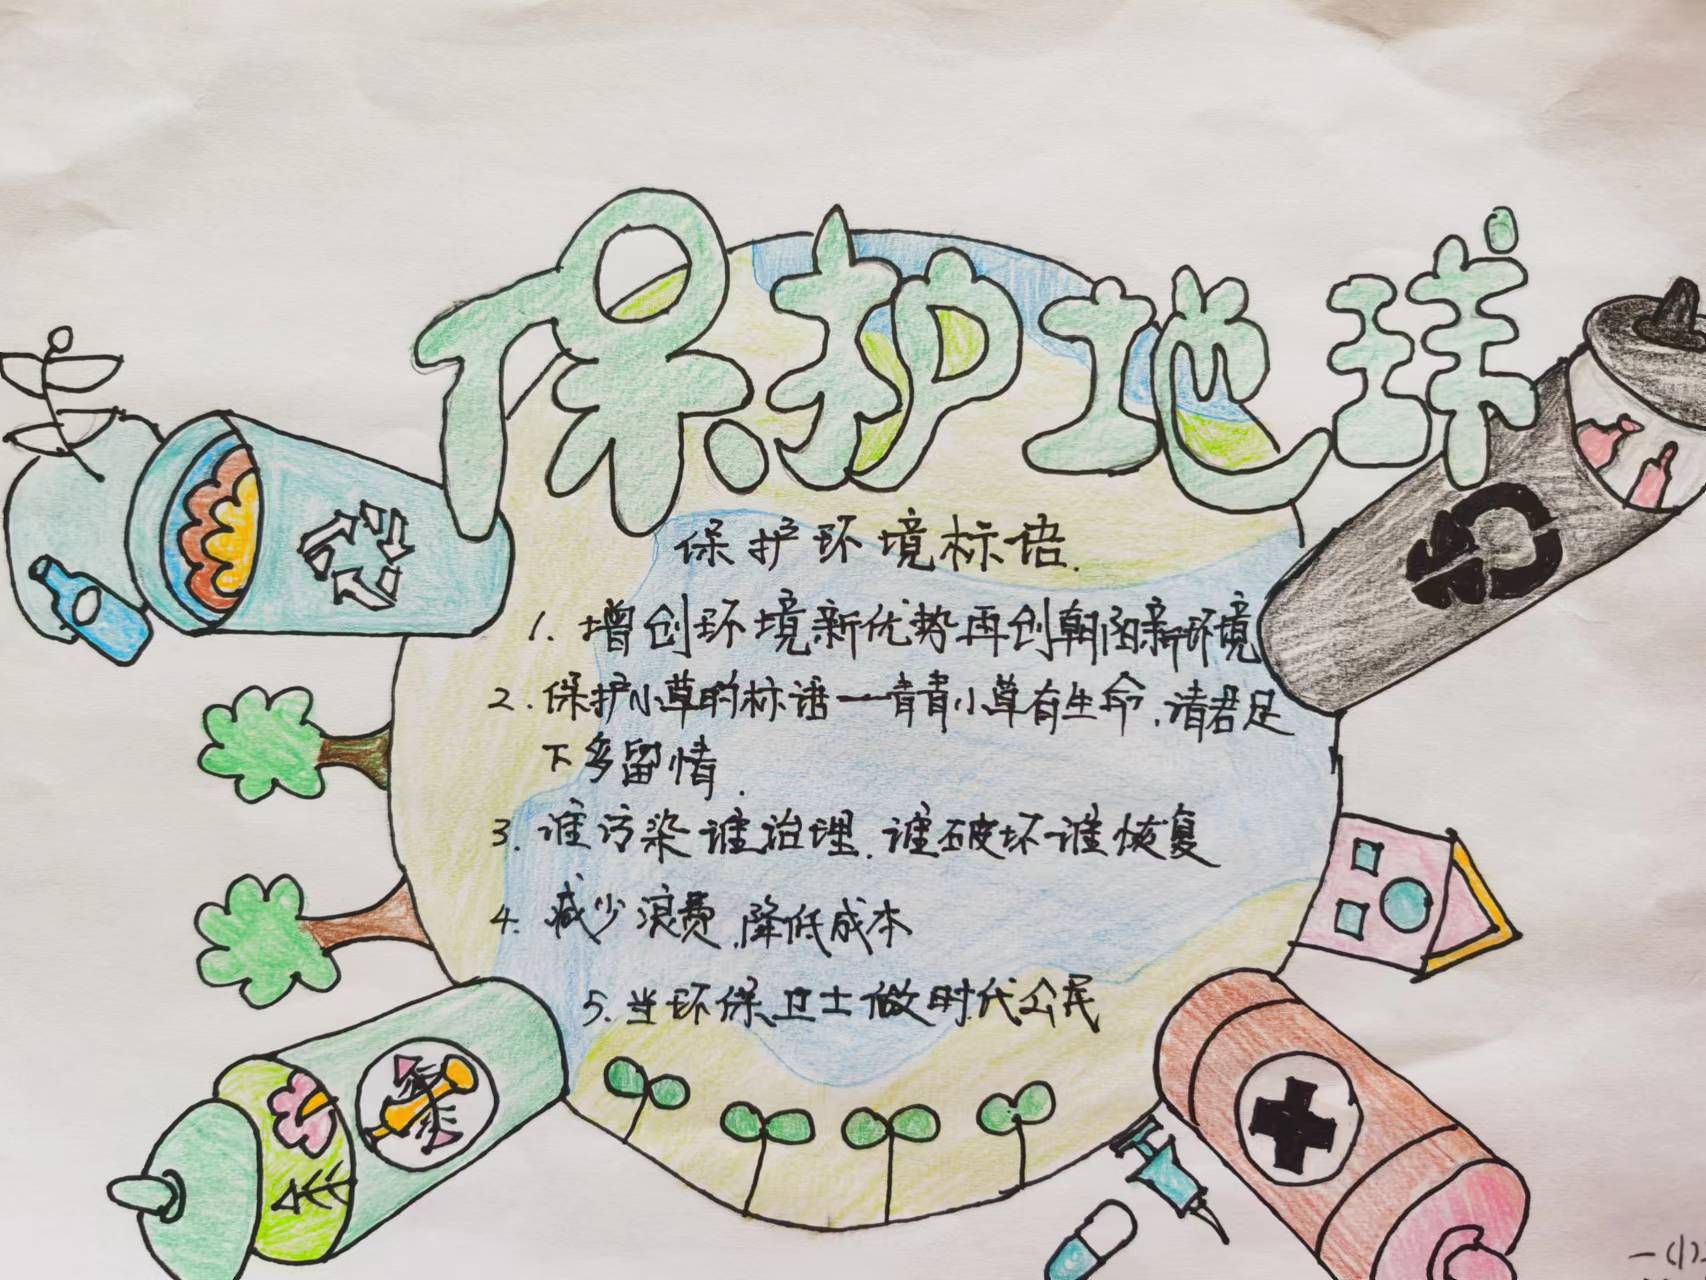 保护地球
保护环境标语.
1. 增创环境新优势再创朝阳新环境
2. 保护小草的标语——青青小草有生命,请君足
下多留情.
3. 谁污染谁治理.谁破坏谁恢复
4. 减少浪费.降低成本
5. 当环保卫士做时代公民